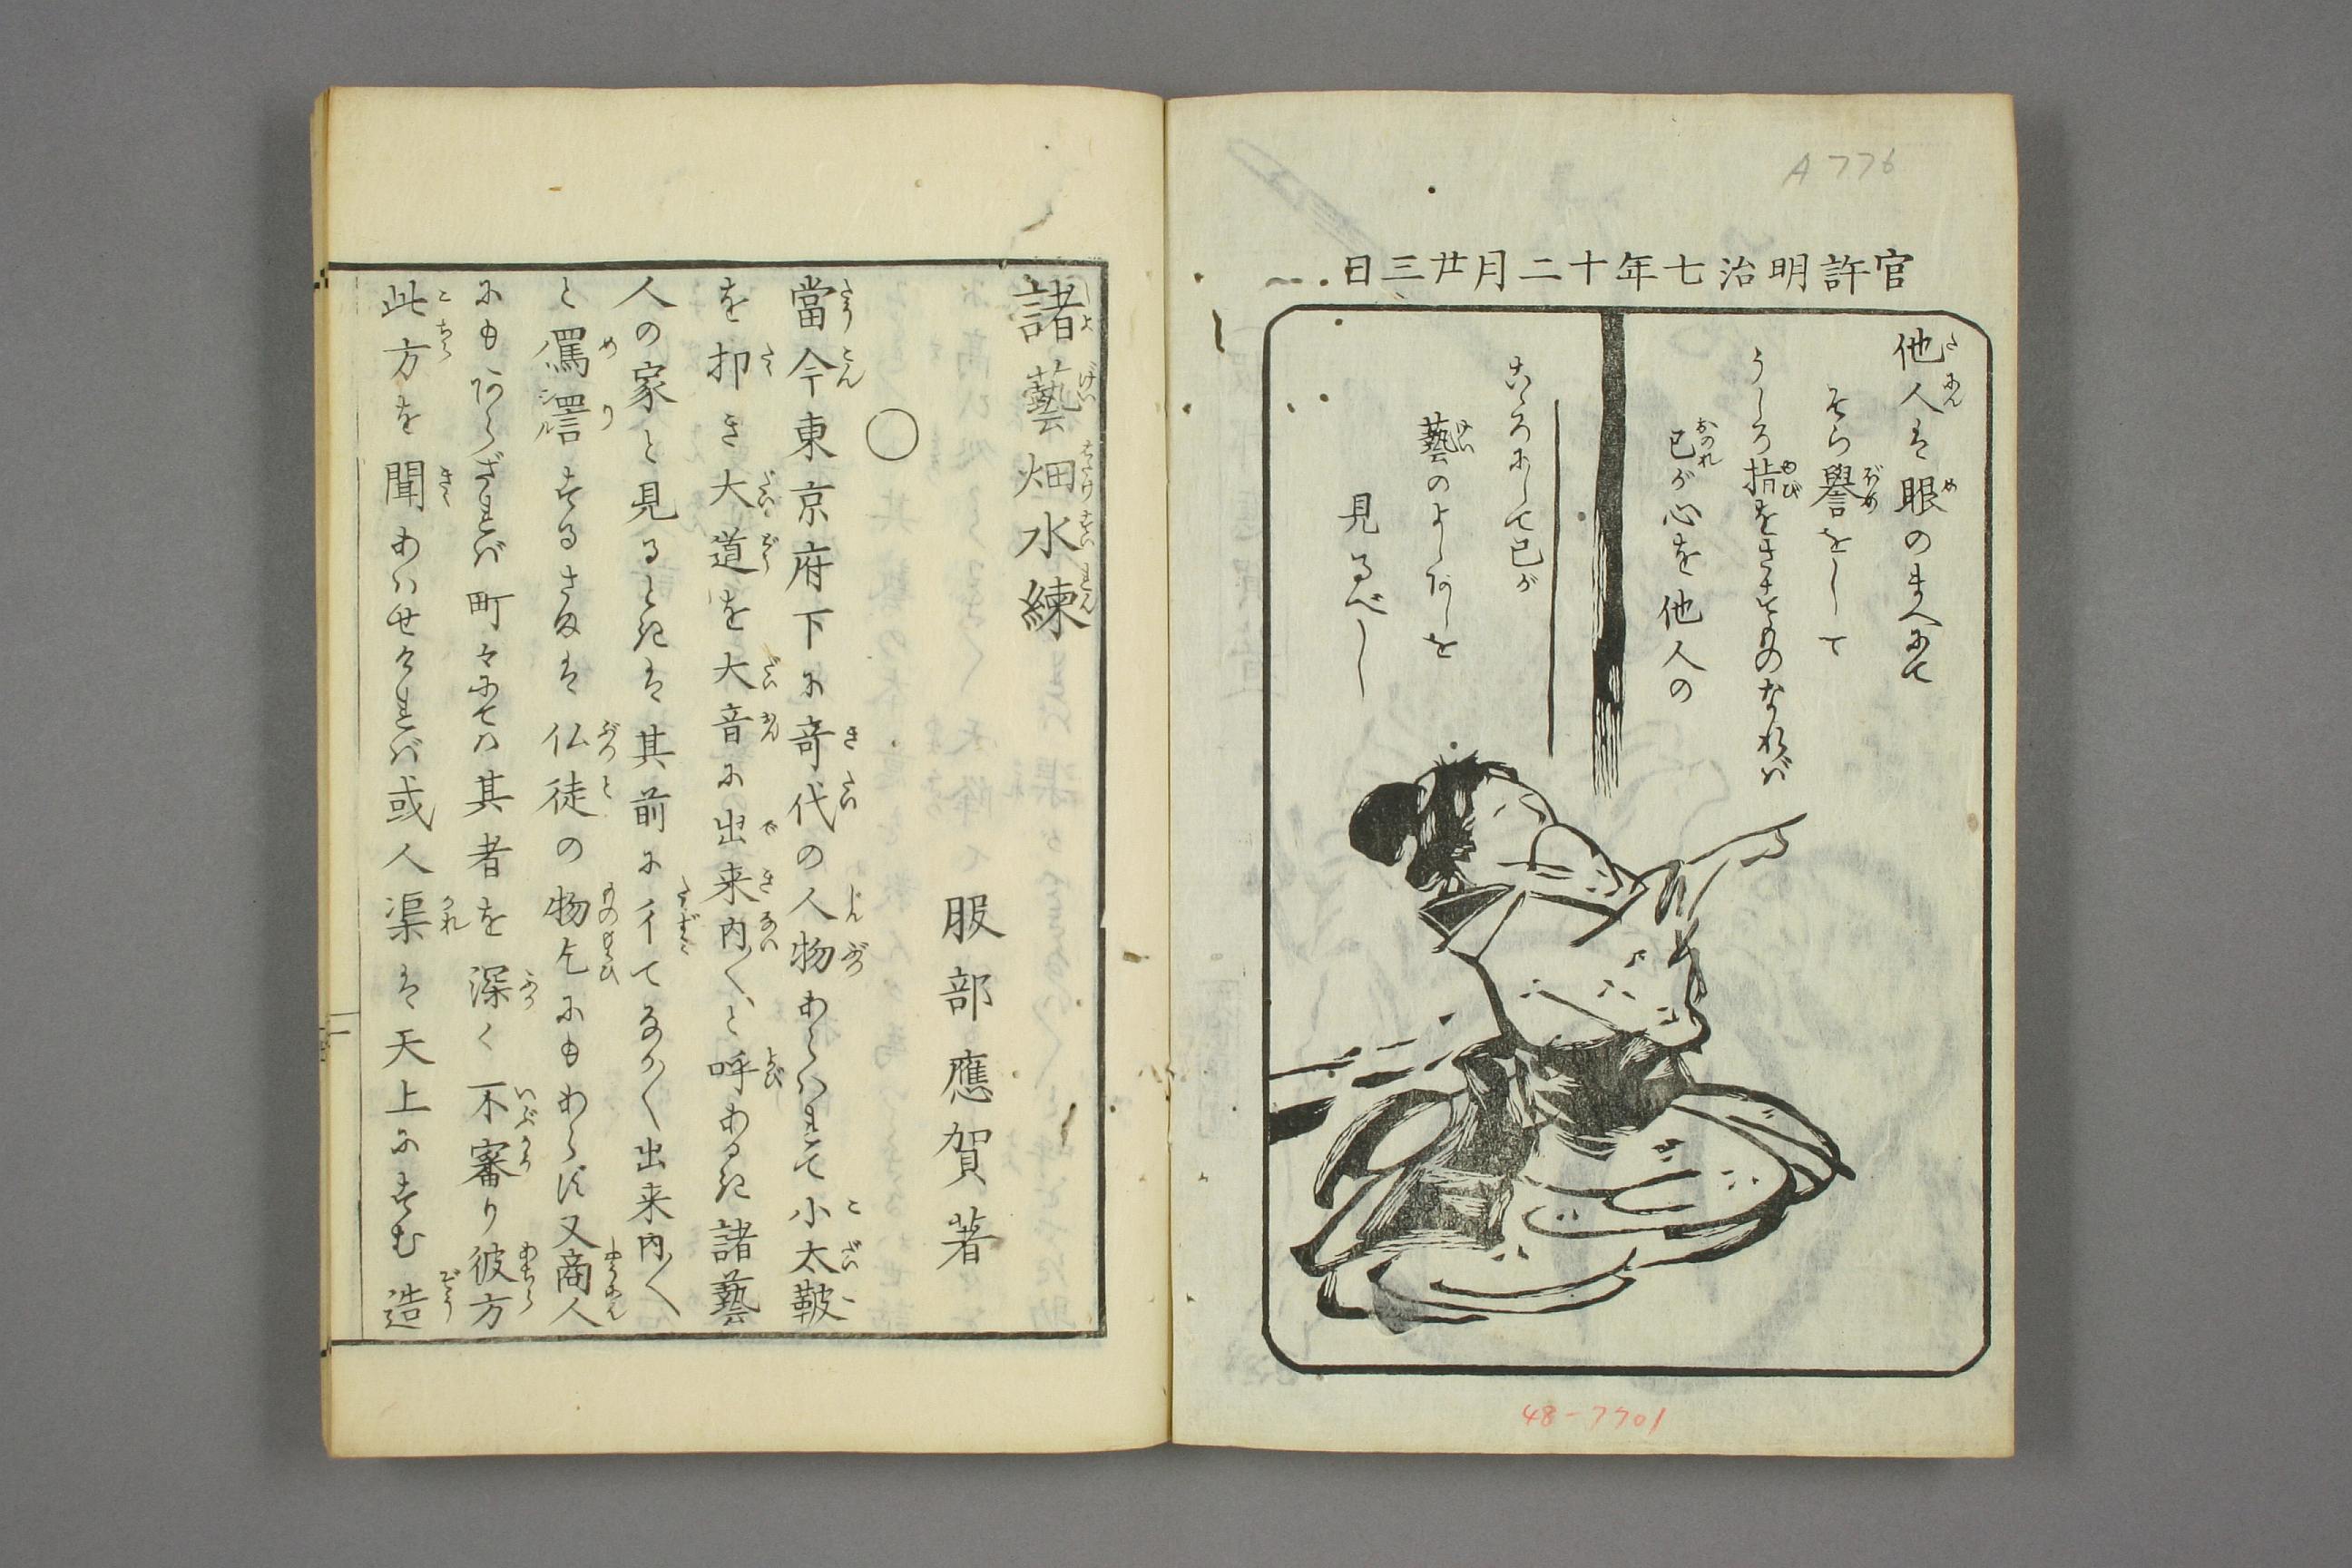 A776
官許明治七年十二月廿三日
他人は眼のまへにて
そら譽をして
うしろ指をさすものなれバ
己が心を他人の
こゝろにして己が
藝のよしあしを
見るべし
48-7701
諸藝畑水練
服部應賀著
○
當今東京府下に奇代の人物あらハれて小太鞁
を扣き大道を大音に出来内〱と呼あるき諸藝
人の家と見るときは其前に彳てなか〱出来内〱
と罵譯するさまは仏徒の物乞にもあらず又商人
にもあらざれバ町々にてハ其者を深く不審り彼方
此方を聞あハせけれバ或人渠は天上にすむ造